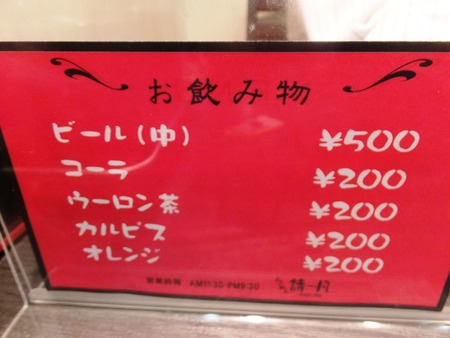 お飲み物
ビール(中) ¥500
コーラ ¥200
ウーロン茶 ¥200
カルピス ¥200
オレンジ ¥200
営業時間 AM11:30-PM9:30